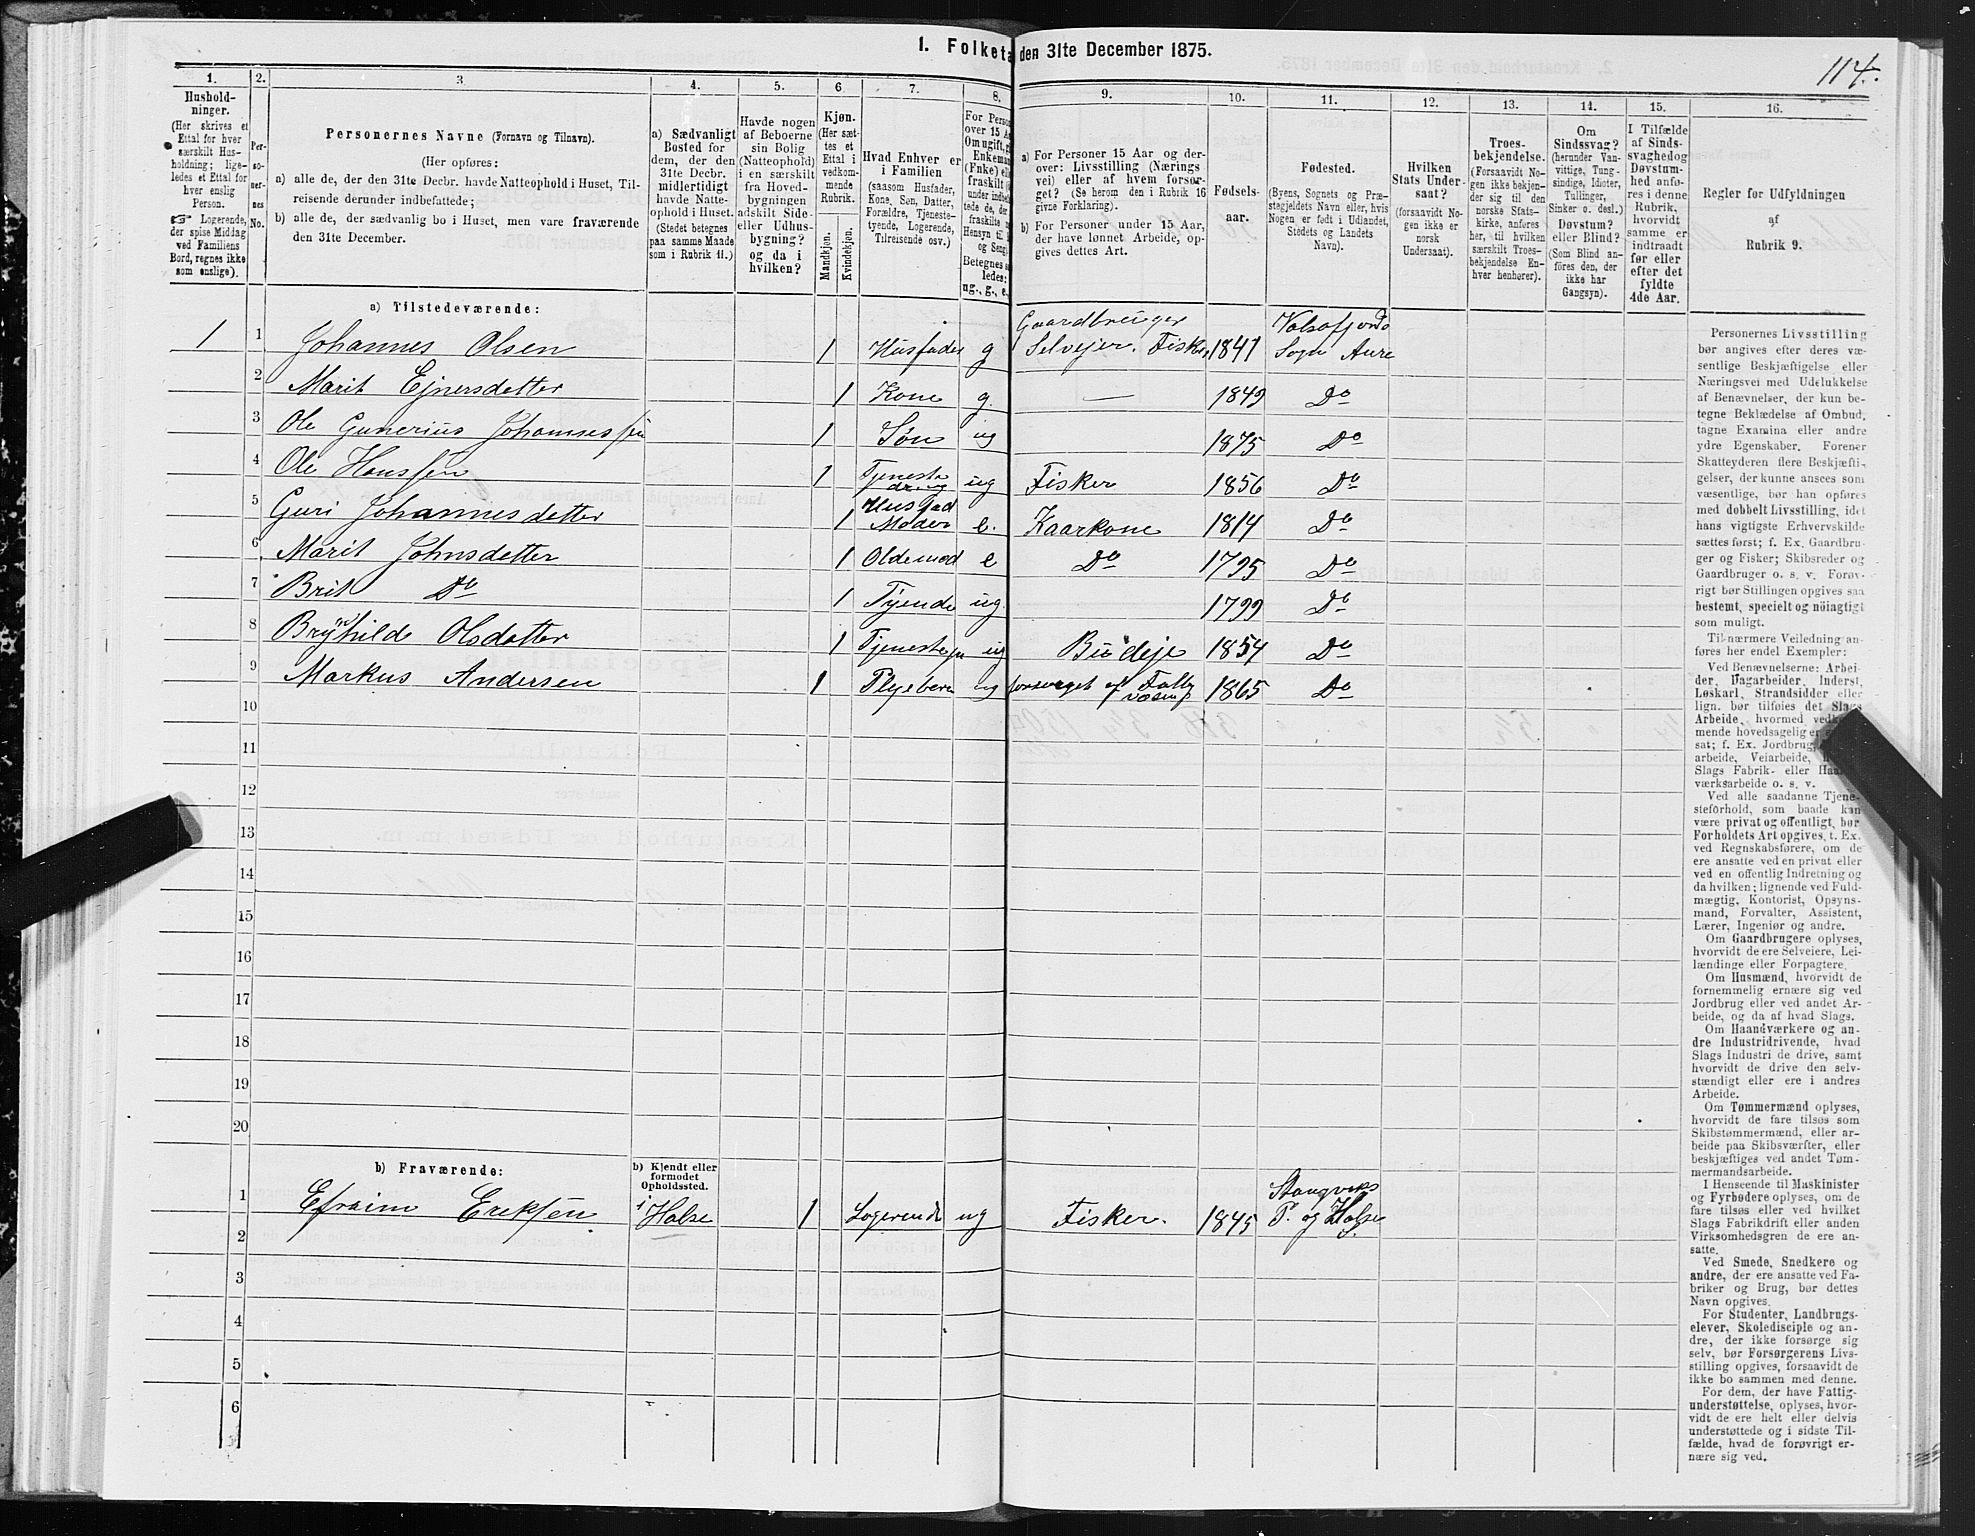 1. Folketa den 31te December 1875.
114.
1. 2. 3. 4. 5. 6 7. 8. 9. 10. 11. 12. 13. 14. 15. 16.
Hushold-
ninger.
(Her skrives et
Ettal for hver
særskilt Hus-
holdning; lige-
ledes et Ettal for
hver enslig
Person.
☞ Logerende,
der spise Middag
ved Familiens
Bord, regnes ikke
som enslige).
Per-
so-
ner-
nes
No.
Personernes Navne (Fornavn og Tilnavn).
(Her opføres:
a) alle de, der den 31te Decbr. havde Natteophold i Huset, Til-
reisende derunder indbefattede;
b) alle de, der sædvanlig bo i Huset, men vare fraværende
den 31te December.
a) Sædvanligt
Bosted for
dem, der den
31te Decbr.
midlertidigt
havde Natte-
ophold i Huset.
(Stedet betegnes
paa samme Maade
som i Rubrik 11.)
Havde nogen
af Beboerne
sin Bolig
(Natteophold)
i en særskilt
fra Hoved-
bygningen
adskilt Side-
eller Udhus-
bygning?
og da i
hvilken?
Kjøn.
(Her sæt-
tes et
Ettal i
vedkom-
mende
Rubrik.
Mandkjøn.
Kvindekjøn.
Hvad Enhver er
i Familien
(saasom Husfader,
Kone, Søn, Datter,
Forældre, Tjeneste-
tyende, Logerende,
Tilreisende osv.)
For Person
over 15 Aa
Om ugift, g
Enkeman
(Enke) elle
fraskilt
under indbe
tede de, der
fraskilte
Hensyn til
og Seng
Betegnes s
ledes:
ug., g., e.,
a) For Personer 15 Aar og der-
over: Livsstilling (Nærings
vei) eller af hvem forsør-
get? (Se herom den i Rubrik 16
givne Forklaring).
b) For Personer under 15 Aar,
der have lønnet Arbeide, op-
gives dettes Art.
Fødsels-
aar.
Fødested.
(Byens, Sognets og Præ-
stegjeldets Navn eller, hvis
Nogen er født i Udlandet,
Stedets og Landets
Navn).
Hvilken
Stats Under-
saat?
(forsaavidt No-
gen ikke er
norsk
Undersaat).
Troes-
bekjendelse.
(Forsaavidt No-
gen ikke bekjen-
der sig til den
norske Stats-
kirke, anføres
her, til hvilken
særskilt Troes-
bekjendelse En-
hver henhører).
Om
Sindssvag?
(herunder Van-
vittige, Tung-
sindige, Idioter,
Tullinger,
Sinker o. desl.)
Døvstum?
eller Blind?
(Som Blind an-
føres den, der
ikke har
Gangsyn).
I Tilfælde
af Sinds-
svaghed og
Døvstum-
hed anfø-
res i denne
Rubrik,
hvorvidt
samme er
indtraadt
før eller
efter det
fyldte
4de Aar.
Regler for Udfyldningen
af
Rubrik 9.
a) Tilstedeværende:
1 1 Johannes Olsen 1 Husfader g Gaardbruger Selvejer. Fisker 1841 Valsøfjords Sogn Aure
2 Marit Ejnersdatter 1 Kone g. — 1849 Do
3 Ole Gunerius Johannessen 1 Søn ug 1875 Do
4 Ole Hanssen 1 Tjeneste dreng ug Fisker 1856 Do
5 Guri Johannesdatter 1 Husfad Moder e. Kaarkone 1814 Do
6 Marit Johnsdatter 1 Oldemod e Do 1795 Do
7 Brit Do 1 Tyende ug. 1799 Do
8 Brynhilde Olsdatter 1 Tjeneste ug Budeje 1854 Do
9 Markus Andersen 1 Plejebarn ug forsørget af 1865 Do
10
11
12
13
14
15
16
17
18
19
20
b) Fraværende:
b) Kjendt eller
formodet
Opholdssted.
1 Efraim Eriksen i Halse 1 Logerende ug Fisker. 1845 Stangviks P. og Halse
2
3
4
5
6
Personernes Livsstilling
bør angives efter deres væ-
sentlige Beskjæftigelse eller
Næringsvei med Udelukkelse
af Benævnelser, der kun be-
tegne Beklædelse af Ombud,
tagne Examina eller andre
ydre Egenskaber. Forener
Skatteyderen flere Beskjæfti-
gelser, der kunne ansees som
væsentlige, bør han opføres
med dobbelt Livsstilling, idet
hans vigtigste Erhvervskilde
sættes først; f. Ex. Gaardbru-
ger og Fisker; Skibsreder og
Gaardbruger o. s. v. Forøv-
rigt bør Stillingen opgives saa
bestemt, specielt og nøiagtigt
som muligt.
Til nærmere Veiledning an-
føres her endel Exempler:
Ved Benævnelserne: Arbei-
der, Dagarbeider, Inderst,
Løskarl, Strandsidder eller
lign. bør tilføies det Slags
Arbeide, hvormed vedkom-
mende hovedsagelig er
sat; f. Ex. Jordbrug,
arbeide, Veiarbeide,
Slags Fabrik- eller Haand-
værksarbeide o. s. v.
Ved alle saadanne Tjene-
steforhold, som baade kan
være privat og offentligt, bør
Forholdets Art opgives, t. Ex.
ved Regnskabsførere, om de
ere ansatte ved en privat eller
ved en offentlig Indretning og
da hvilken; lignende ved Fuld-
mægtig, Kontorist, Opsyns-
mand, Forvalter, Assistent,
Lærer, Ingeniør og andre.
Om Gaardbrugere oplyses,
hvorvidt de ere Selveiere, Lei-
lændinge eller Forpagtere.
Om Husmænd, hvorvidt de
fornemmelig ernære sig ved
Jordbrug eller ved andet Ar-
beide, og da af hvad Slags.
Om Haandværkere og an-
dre Industridrivende, hvad
Slags Industri de drive, samt
hvorvidt de drive den selv-
stændigt eller ere i andres
Arbeide.
Om Tømmermænd oplyses,
hvorvidt de fare tilsøs som
Skibstømmermænd, eller ar-
beide paa Skibsværfter, eller
beskjæftiges ved andet Tøm-
mermandsarbeide.
I Henseende til Maskinister
og Fyrbødere oplyses, om de
fare tilsøs eller ved hvilket
Slags Fabrikdrift eller anden
Virksomhedsgren de ere an-
satte.
Ved Smede, Snedkere og
andre, der ere ansatte ved Fa-
briker og Brug, bør dettes
Navn opgives.
For Studenter, Landbrugs-
elever, Skoledisciple og an-
dre, der ikke forsørge sig
selv, bør Forsørgerens Livs-
stilling opgives, forsaavidt de
ikke bo sammen med denne.
For dem, der have Fattig-
understøttelse, oplyses, hvor-
vidt de ere helt eller delvis
understøttede og i sidste Til-
fælde, hvad de forøvrigt er-
nære sig ved.